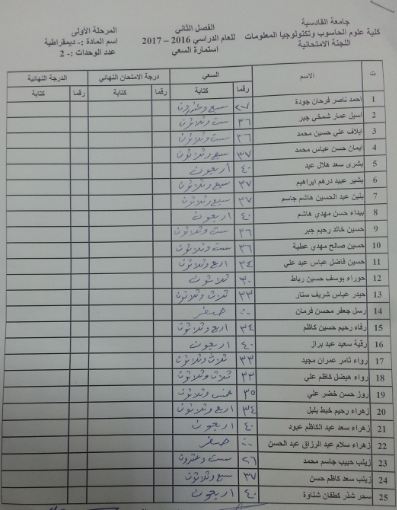 جامعة القادسية
كلية علوم الحاسوب وتكنولوجيا المعلومات
اللجنة الامتحانية
الفصل الثاني
للعام الدراسي 2016 – 2017
استمارة السعي
المرحلة الاولى
اسم المادة :- ديمقراطية
عدد الوحدات :- 2
ت الاسم السعي درجة الامتحان النهائي الدرجة النهائية
رقما كتابة رقما كتابة رقما كتابة
1 احمد ناصر فرحان جودة ٢٧ سبع وعشرون
2 اسيل عمار شمخي جبر ٣٦ ست وثلاثون
3 ايلاف علي حسين محمد ٣٦ ست وثلاثون
4 ايمان حسن عباس محمد ٣٧ سبع وثلاثون
5 بشرى سعد هلال عبد ٤٠ اربعون
6 بشير عبيد درهم ابراهيم ٣٧ سبع وثلاثون
7 بنين عبد الحسين هاشم جاسم ٣٧ سبع وثلاثون
8 بيداء حسن مهدي هاشم ٤٠ اربعون
9 حسين خالد رحيم جبر ٣٦ ست وثلاثون
10 حسين صالح مهدي عطية ٣٦ ست وثلاثون
11 حسين فاضل عباس عبد علي ٣٤ اربع وثلاثون
12 حوراء يوسف حسين رباط ٣٠ ثلاثون
13 حيدر عباس شريف ستار ٣٣ ثلاث وثلاثون
14 رسل جعفر محسن فرمان صفر
15 رفاه رحيم حسين كاظم ٣٤ اربع وثلاثون
16 رقية سعيد عبد براز ٤٠ اربعون
17 رواء ثامر عمران مجيد ٣٣ ثلاث وثلاثون
18 رواء فيصل كاظم علي ٣٣ ثلاث وثلاثون
19 روز حسن خضر علي ٣٥ خمس وثلاثون
20 زهراء رحيم خيط بليل ٣٤ اربع وثلاثون
21 زهراء سعد عبد الكاظم عبود ٤٠ اربعون
22 زهراء سلام عبد الرزاق عبد الحسن صفر
23 زينب حبيب جاسم محمد ٢٦ ست وعشرون
24 زينب سعد كاظم حسن ٣٧ سبع وثلاثون
25 سحر شذر كطفان شناوة ٤٠ اربعون